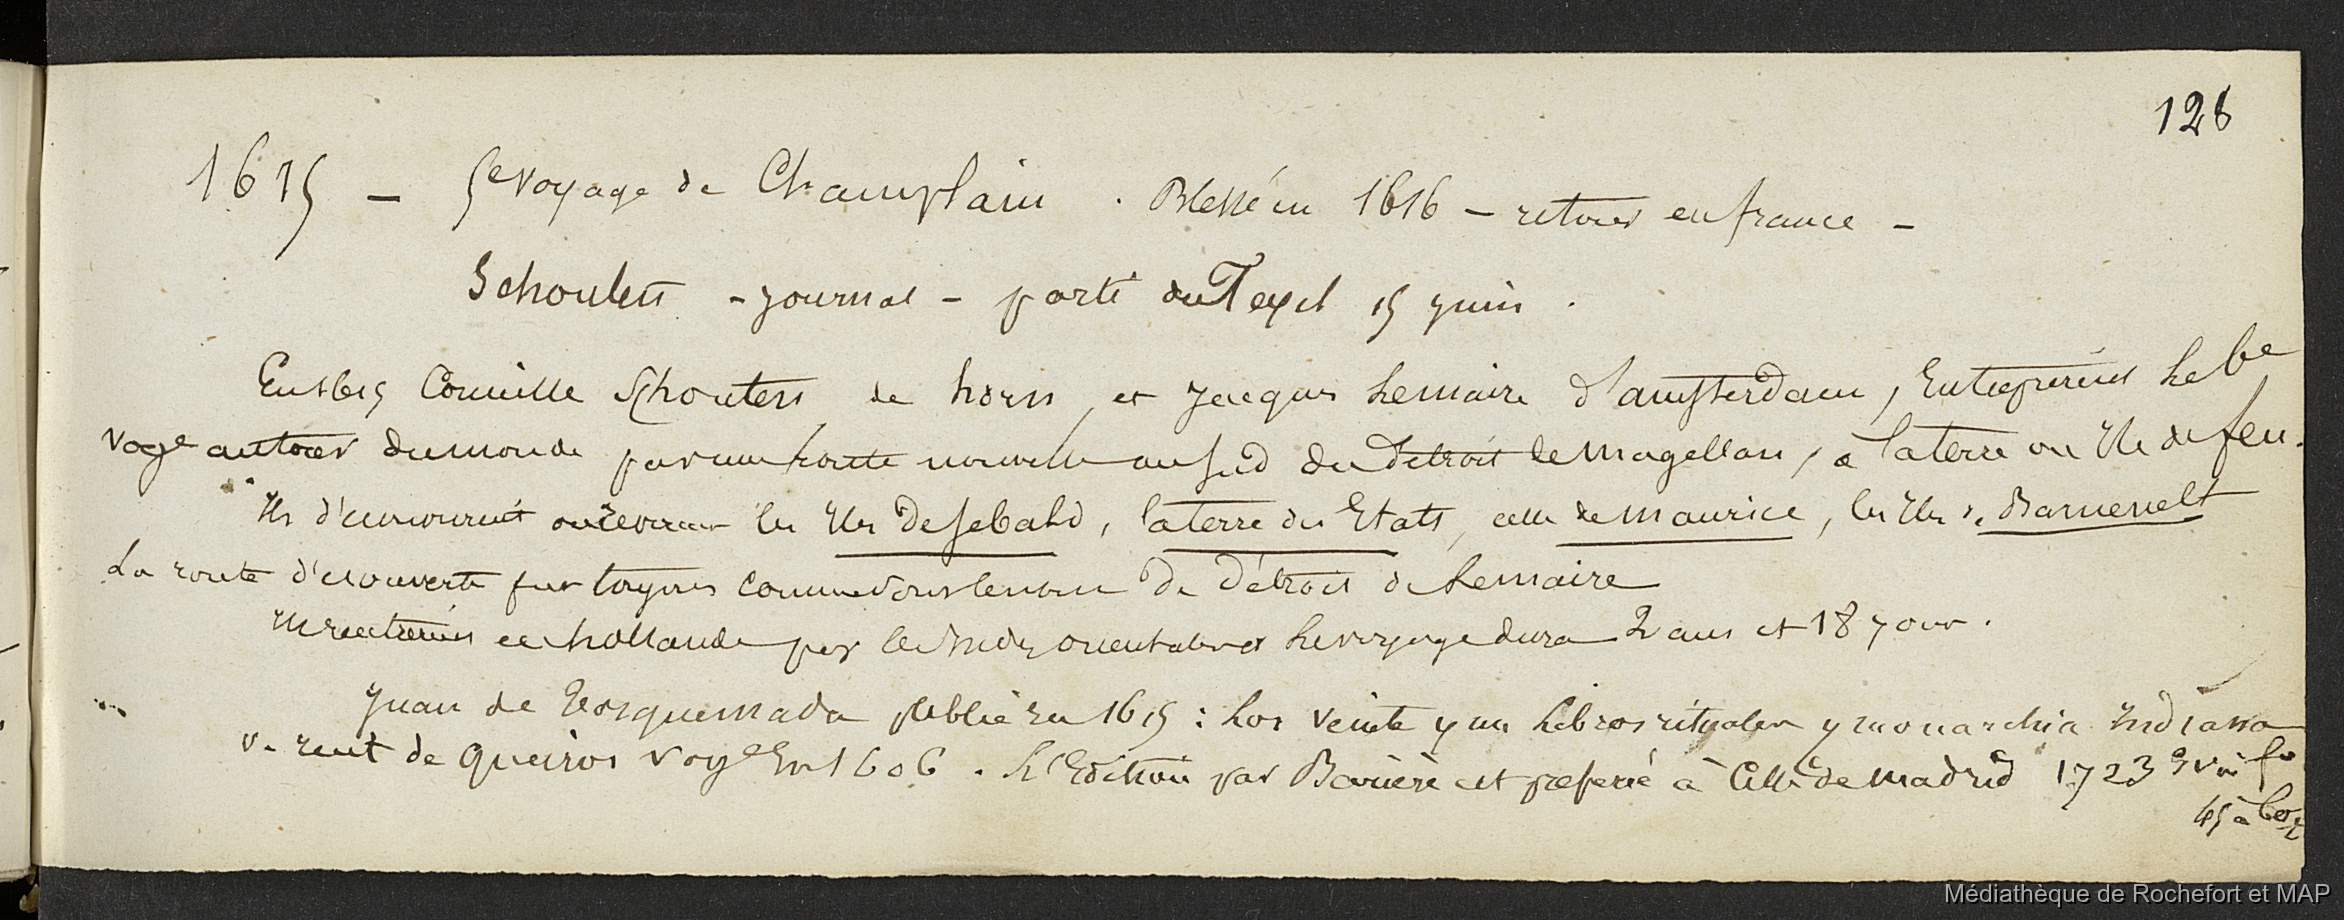 128
1615 – 5e voyage de Champlain . Blessé en 1616 – retour en france –
Schouten - journal - parti du Texel 15 juin .
En 1615 Corneille Schouten de horn et Jacques Lemaire d'amsterdam, Entreprirent le 6e
voye autour du monde par une route nouvelle au sud du Detroit de Magellan, a la terre ou Ile de feu.
Ils découvrirent ou revirent les Iles de Sebald, la terre des Etats, celle de Maurice, les Iles de Barnevelt
La route découverte fut toujours connue sous le nom de Détroit de Lemaire
Ils revinrent en hollande par les Indes orientales et le voyage dura 2 ans et 18 jours.
Juan de Torquemada publie en 1615 : Los veinte y un Libros rituales y monarchia Indiana
de queiros voye En 1606 . L'Edition par Barriere est préférée à Celle de Madrid 1723 3 v. in fo
45 à 60